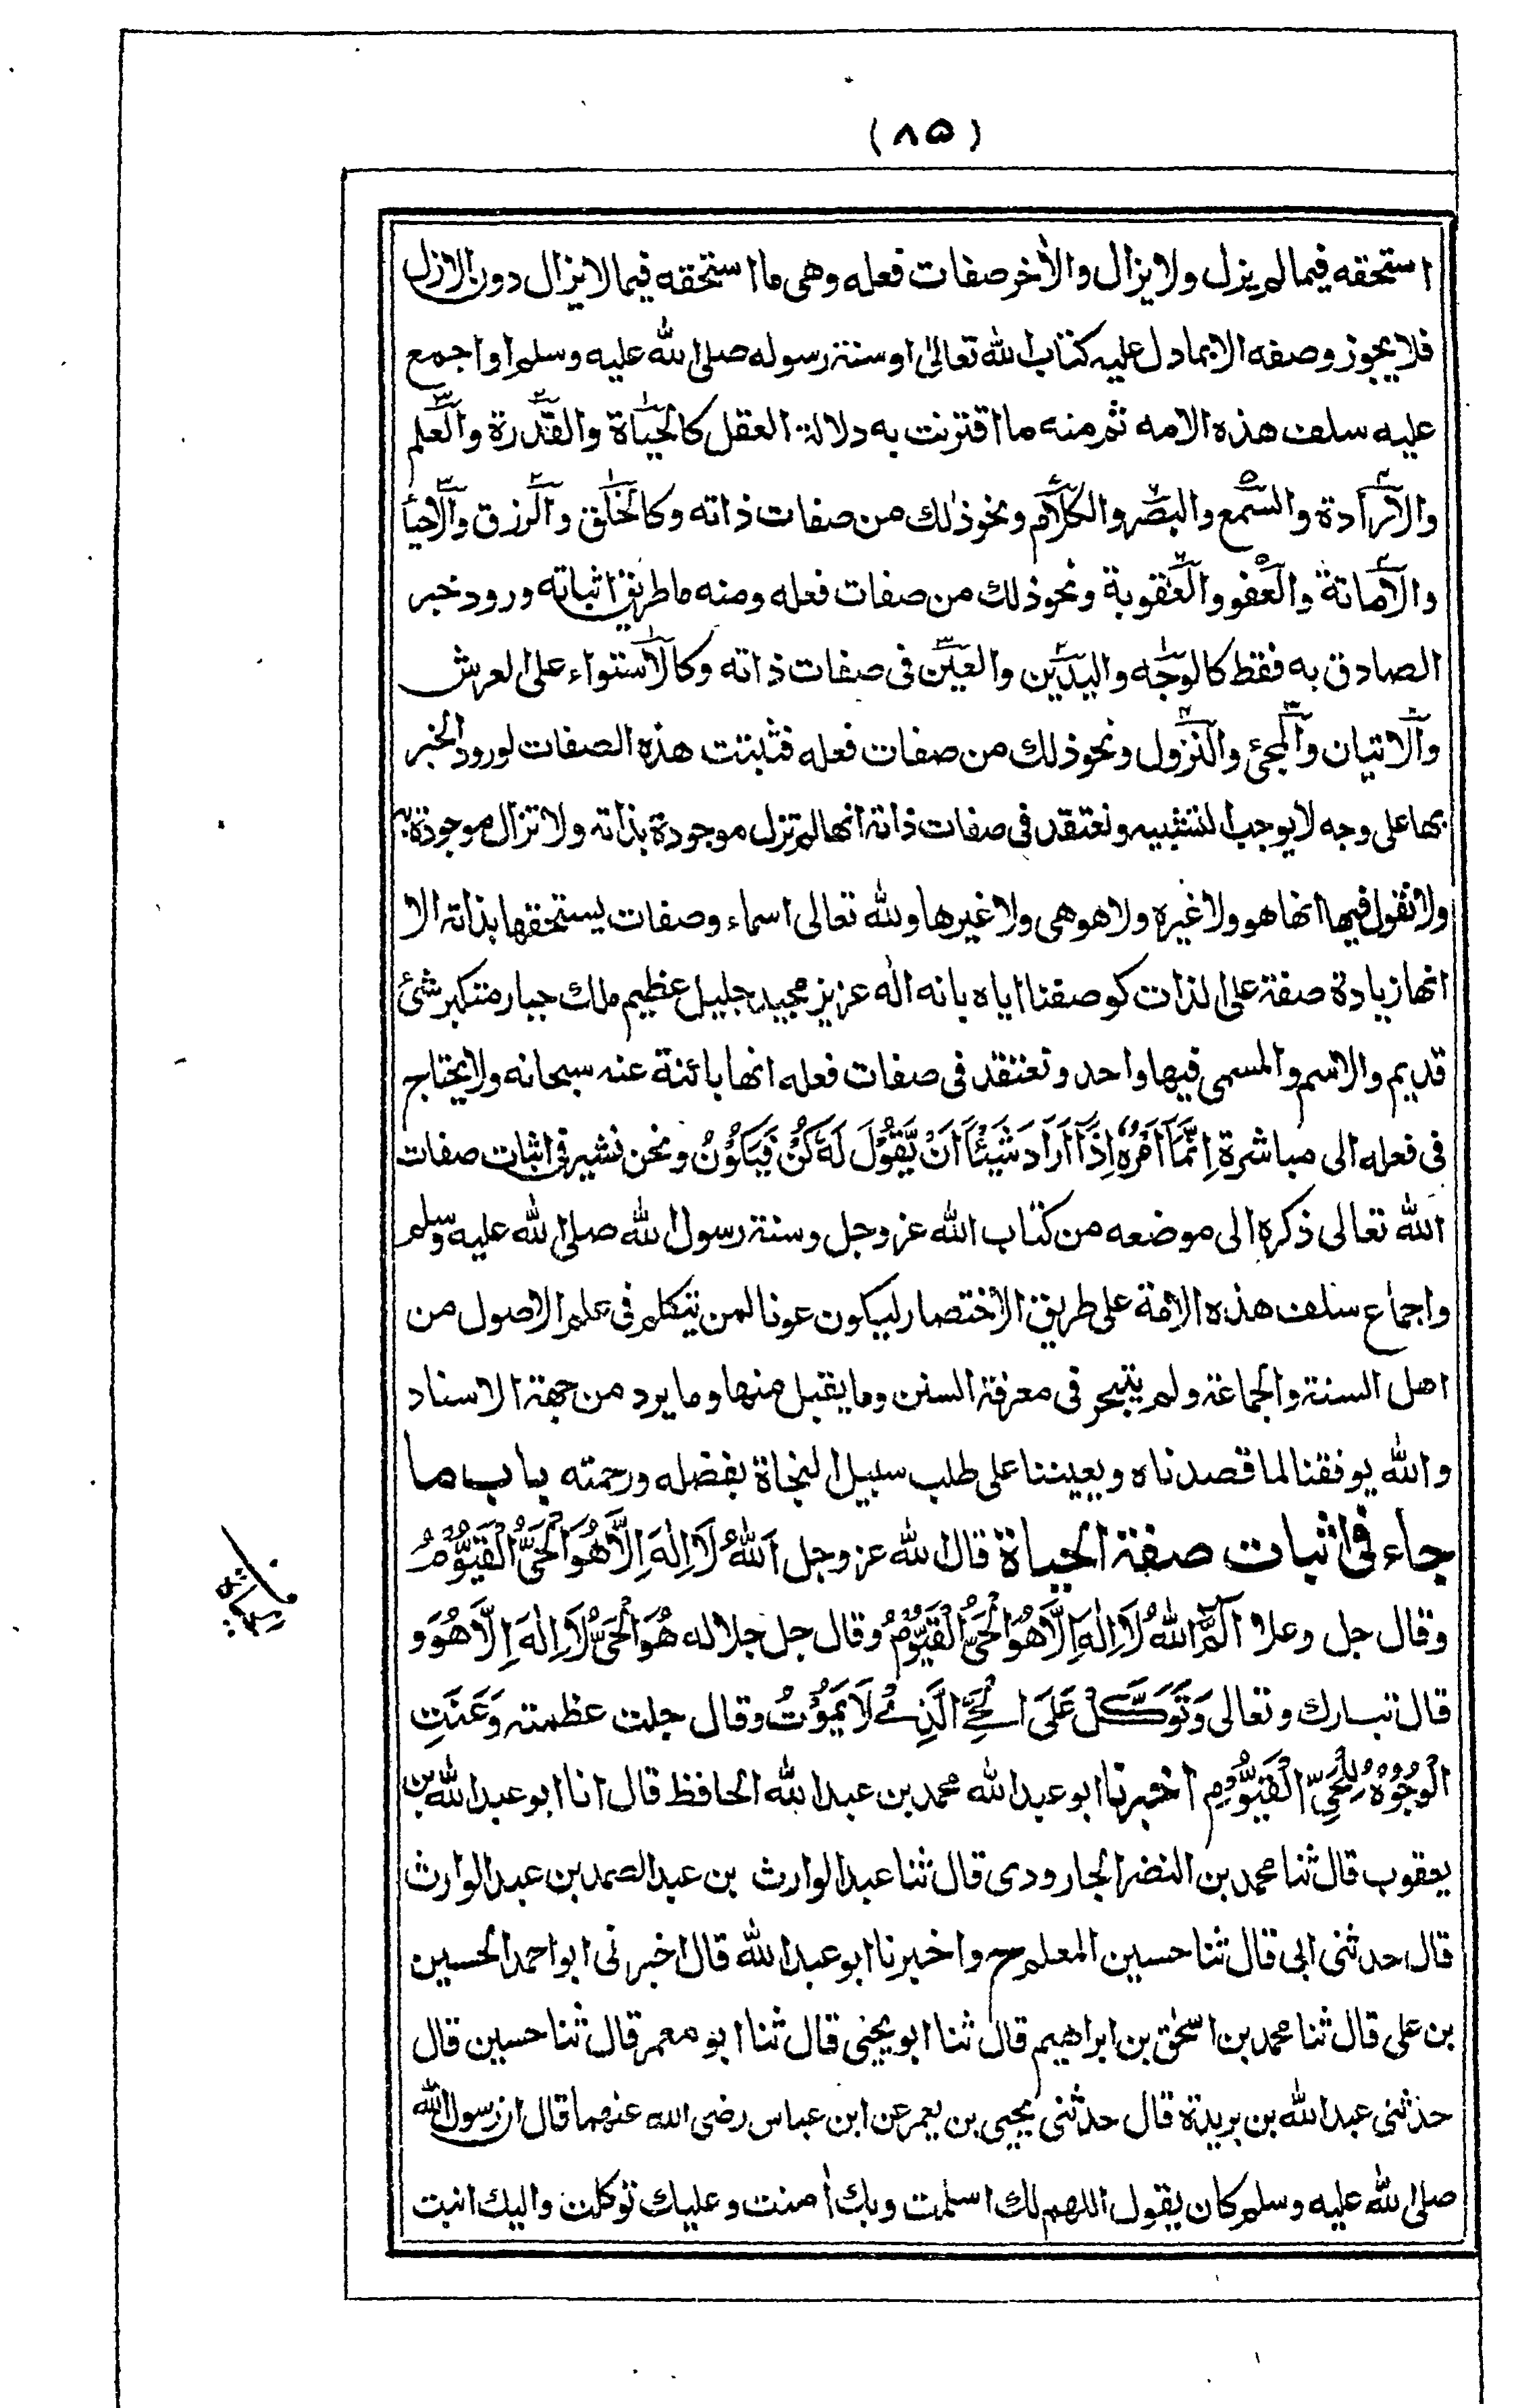 (٨٥)
استحقه فيما لم يزل ولا يزال والأخر صفات فعله وهى ما استحقه فيما لا يزال دون الازل
فلا يجوز وصفه الا بما دل عليه كتاب الله تعالى او سنة رسوله صلى الله عليه وسلم او اجمع
عليه سلف هذه الامه ثم منه ما اقترنت به دلالة العقل كالحياة والقدرة والعلم
والارادة والسمع والبصر والكلام ونحو ذلك من صفات ذاته وكالخلق والرزق والاحيا
والاماتة والعفو والعقوبة ونحو ذلك من صفات فعله ومنه ما طريق اثباته ورود خبر
الصادق به فقط كالوجه واليدين والعين فى صفات ذاته وكالاستواء على العرش
والاتيان والمجئ والنزول ونحو ذلك من صفات فعله فثبتت هذه الصفات لورود الخبر
بها على وجه لا يوجب التشبيه ونعتقد فى صفات ذاته انها لم تزل موجودة بذاته ولا تزال موجودة به
ولا نقول فيها انها هو ولا غيره ولا هو هى ولا غيرها ولله تعالى اسماء وصفات يستحقها بذاته الا
انها زيادة صفة على الذات كوصفنا اياه بانه اله عزيز مجيد جليل عظيم ملك جبار متكبر شئ
قديم والاسم والمسمى فيها واحد ونعتقد فى صفات فعله انها بائنة عنه سبحانه ولا يحتاج
فى فعله الى مباشرة اِنَّمَآ اَمْرُهٗ اِذَآ اَرَادَ شَيْئًا اَنْ يَّقُوْلَ لَهٗ كُنْ فَيَكُوْنُ ونحن نشير فى اثبات صفات
الله تعالى ذكره الى موضعه من كتاب الله عز وجل وسنة رسول الله صلى الله عليه وسلم
واجماع سلف هذه الامة على طريق الأختصار ليكون عونا لمن يتكلم فى علم الاصول من
اهل السنة والجماعة ولم يتبحر فى معرفة السنن وما يقبل منها وما يرد من جهة الاسناد
والله يوفقنا لما قصدناه ويعيننا على طلب سبيل النجاة بفضله ورحمته باب ما
جاء فى اثبات صفة الحياة قال الله عز وجل اَللّٰهُ لَآ اِلٰهَ اِلَّا هُوَ الْحَىُّ الْقَيُّوْمُ
وقال جل وعلا الٓمّٓ اللّٰهُ لَآ اِلٰهَ اِلَّا هُوَ الْحَىُّ الْقَيُّوْمُ وقال جل جلاله هُوَ الْحَىُّ لَآ اِلٰهَ اِلَّا هُوَ و
قال تبارك وتعالى وَتَوَكَّلْ عَلَى الْحَىِّ الَّذِىْ لَا يَمُوْتُ وقال جلت عظمته وَعَنَتِ
الْوُجُوْهُ لِلْحَىِّ الْقَيُّوْمِ اخبرنا ابو عبد الله محمد بن عبد الله الحافظ قال انا ابو عبد الله بن
يعقوب قال ثنا محمد بن النضر الجارودى قال ثنا عبد الوارث بن عبد الصمد بن عبد الوارث
قال حدثنى ابى قال ثنا حسين المعلم ح واخبرنا ابو عبد الله قال اخبرنى ابو احمد الحسين
بن على قال ثنا محمد بن اسحٰق بن ابراهيم قال ثنا ابو يحيى قال ثنا ابو معمر قال ثنا حسين قال
حدثنى عبد الله بن بريدة قال حدثنى يحيى بن يعمر عن ابن عباس رضى الله عنهما قال ان رسول الله
صلى الله عليه وسلم كان يقول اللهم لك اسلمت وبك أمنت وعليك توكلت واليك انبت